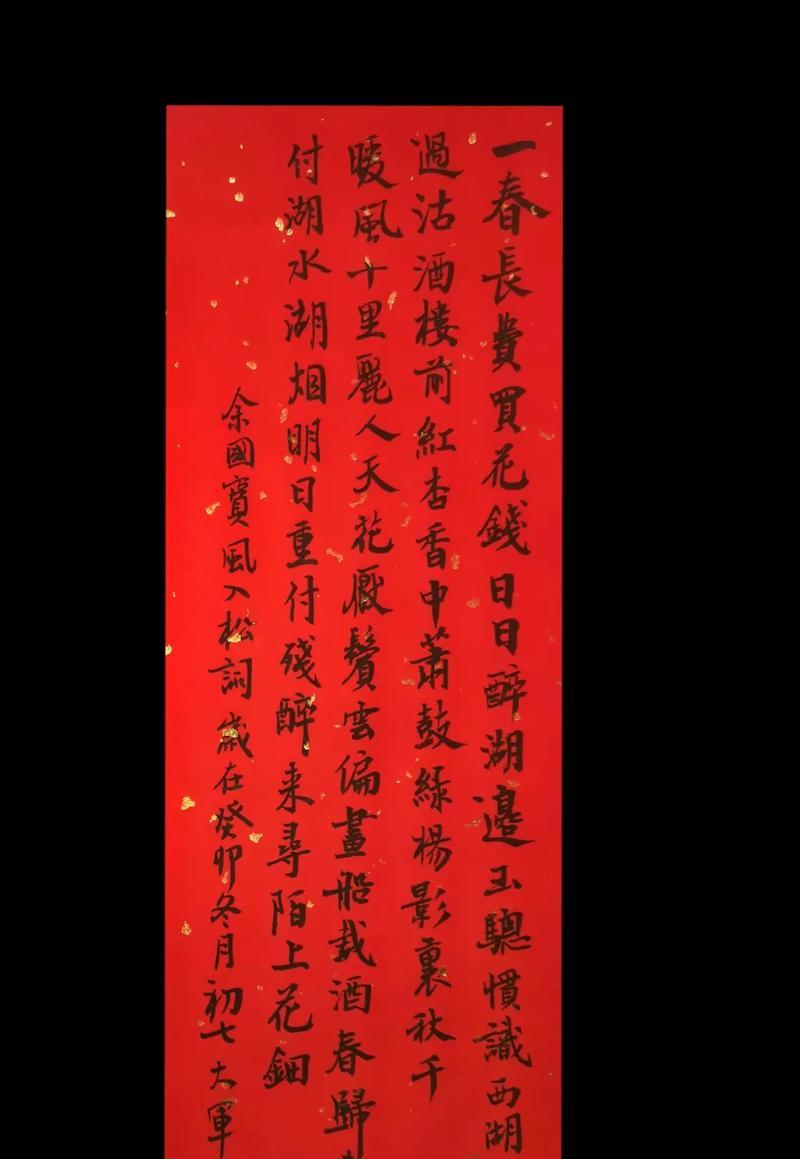 一春長費買花錢日日醉湖邊玉驄慣識西湖
過沽酒樓前紅杏香中蕭鼓綠楊影裏秋千
暖風十里麗人天花厭鬢雲偏畫船載酒春歸
付湖水湖烟明日重付殘醉来尋陌上花鈿
余國寶風入松詞歲在癸卯冬月初七大軍